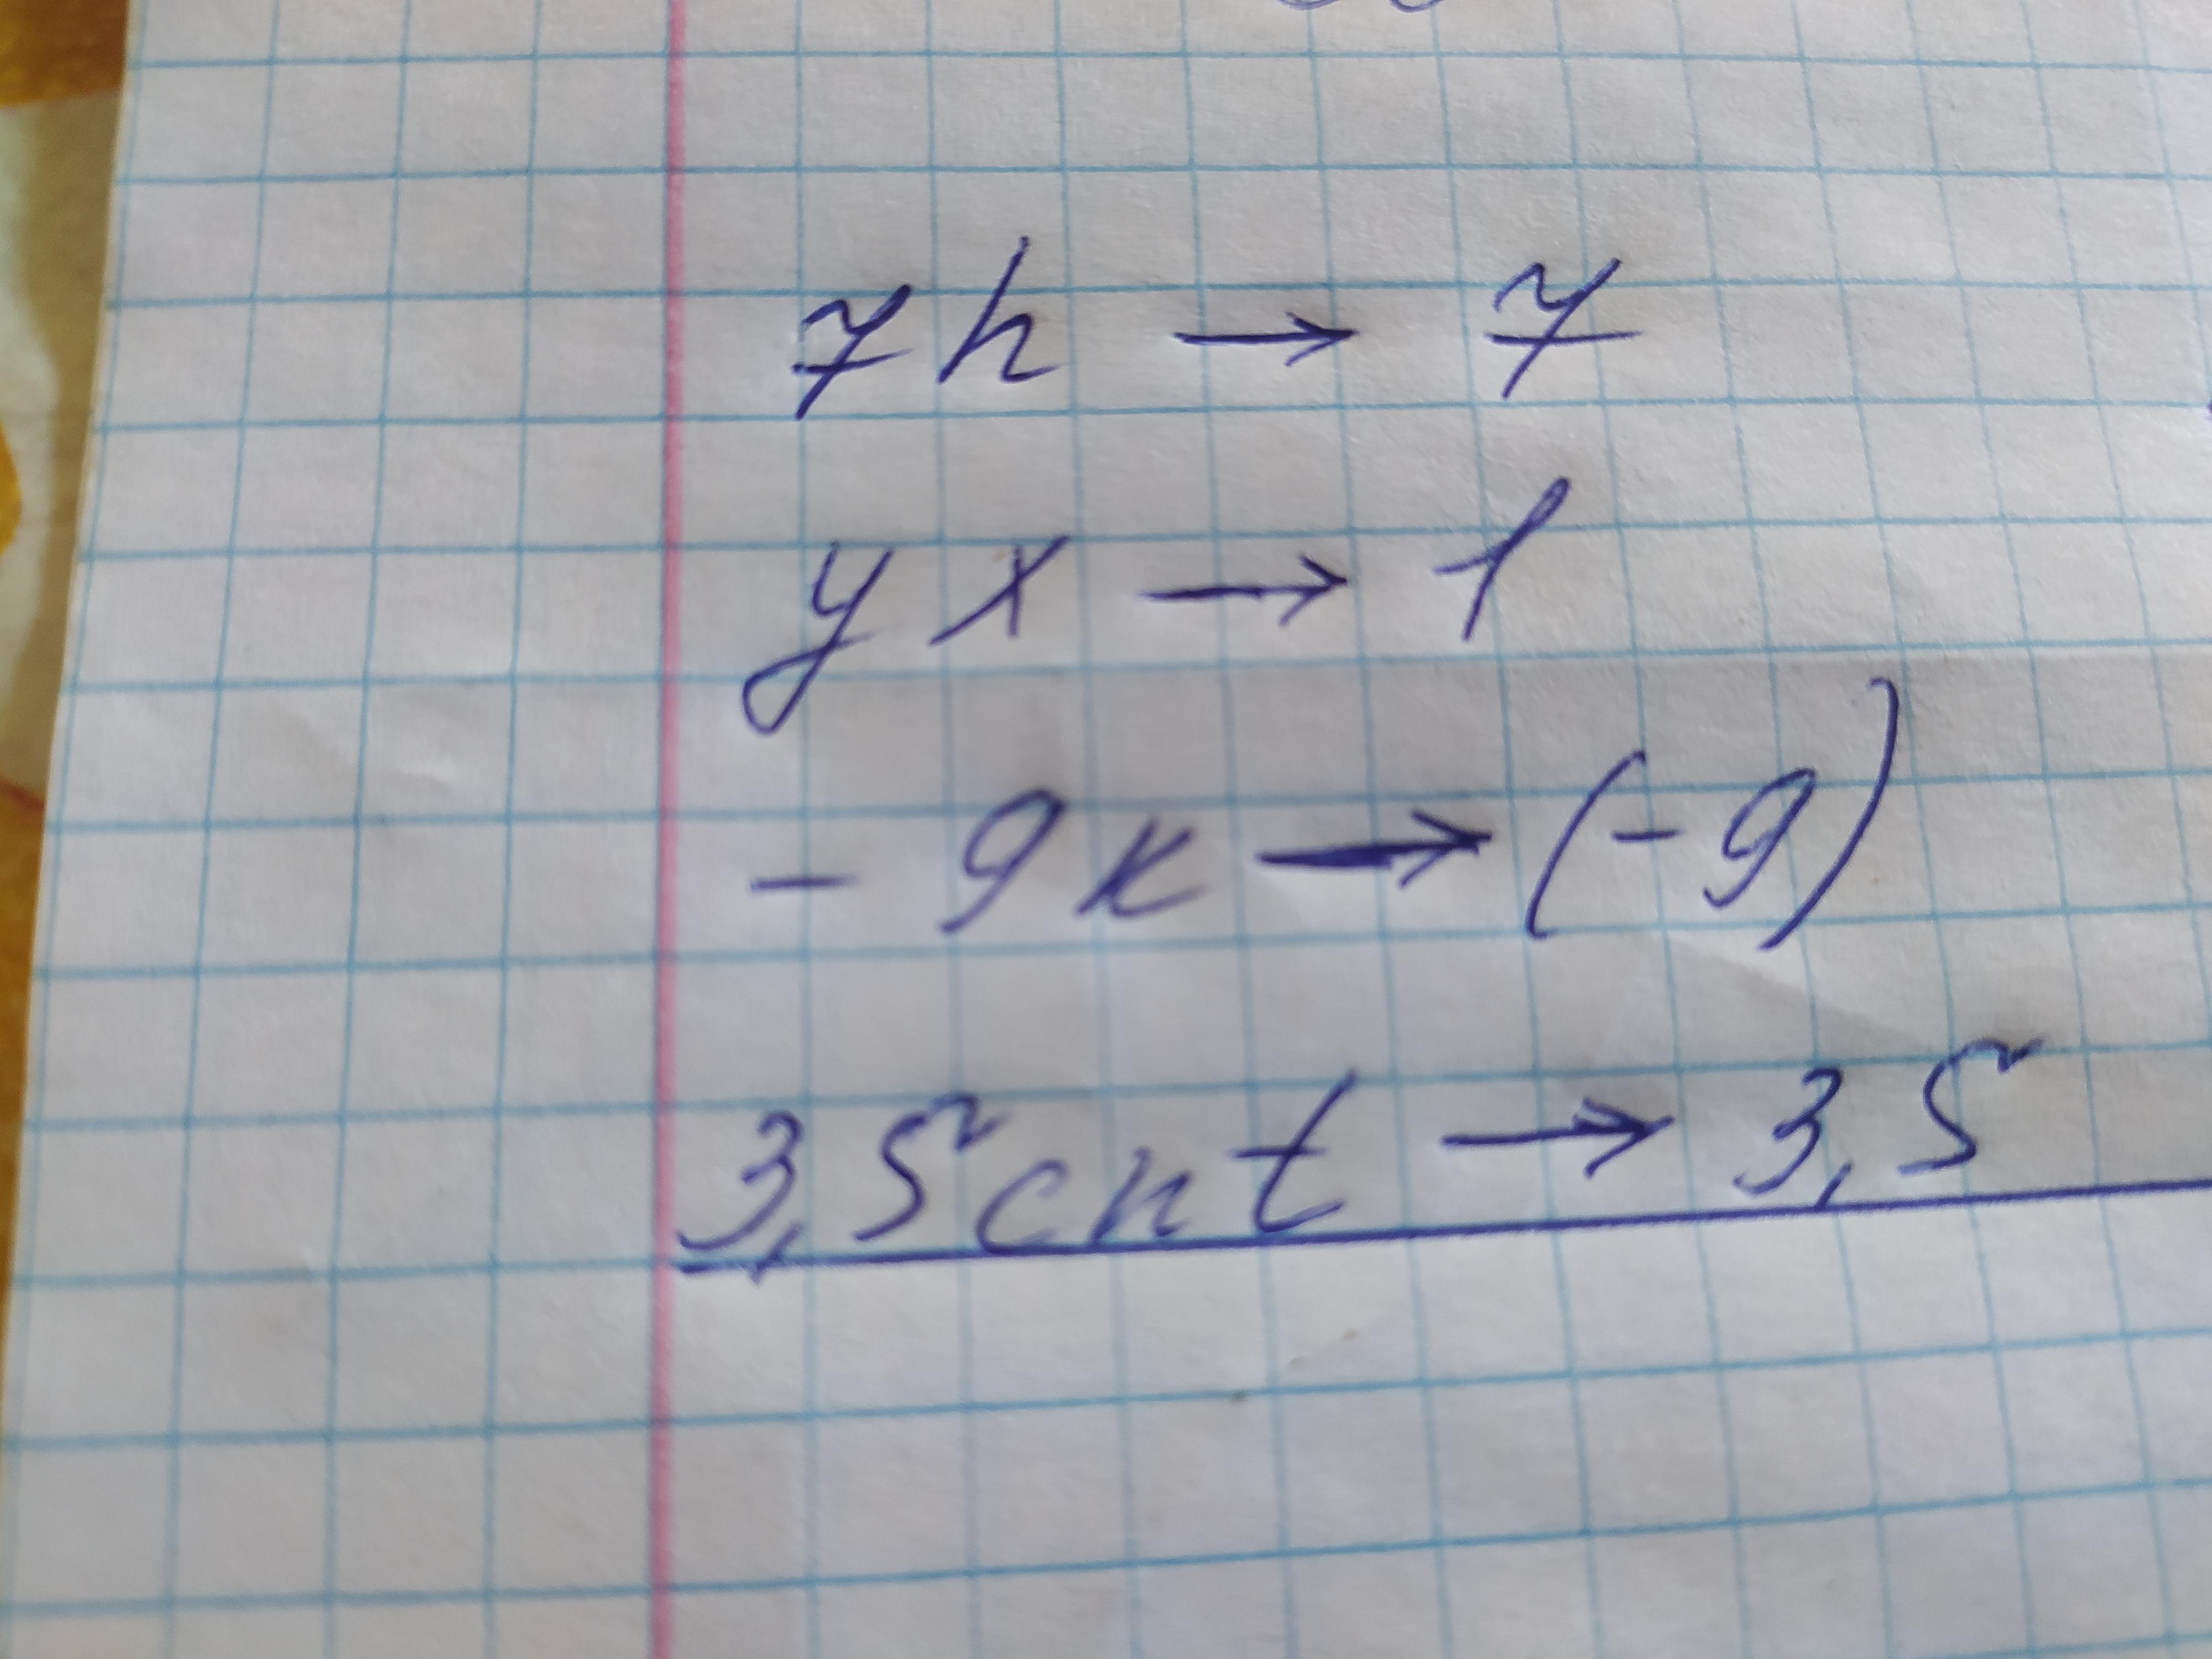 7h → 7
yx → 1
- 9x → (-9)
3,5cnt → 3,5